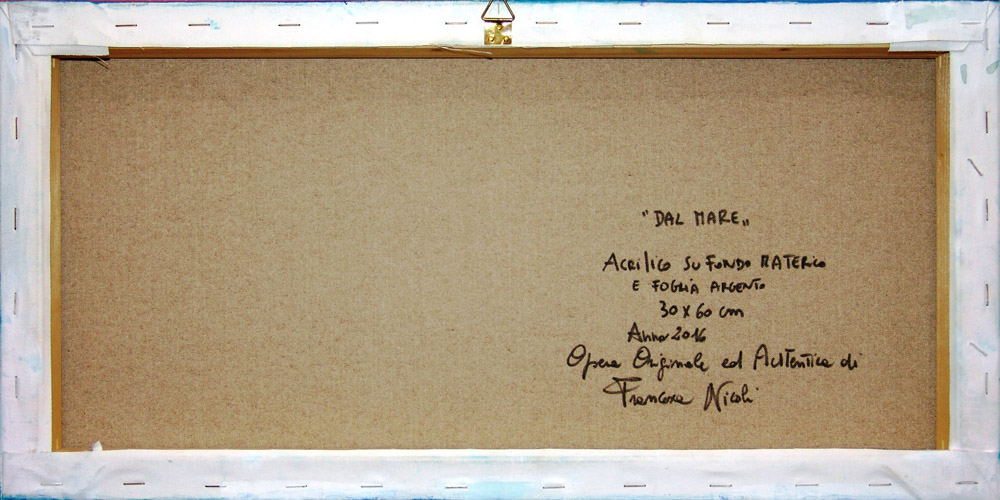 "DAL MARE„
ACRILICO SU FONDO MATERICO
E FOGLIA ARGENTO
30 x 60 cm
Anno 2016
Opera Originale ed Autentica di
Francesca Nicoli